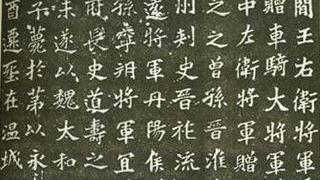 間王右衛將軍
贈車騎大將軍
中左衛將軍贈
之之曾孫晉淮
刾史晉祚流
將軍丹陽侯
孫寧朔將軍宜
長史道壽之
未遂以魏太和
子薨於第以永
酉遷塟在温城